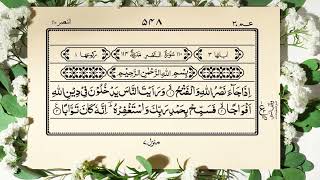 عـمّ ٣٠ ٥٤٨ النصر ١١٠
اٰیاتها ٣ ١١٠ سُوْرَةُ النَّصْرِ مَدَنِیَّةٌ ١١٤ رکوعها ١
بِسْمِ اللّٰهِ الرَّحْمٰنِ الرَّحِیْمِ
اِذَا جَآءَ نَصْرُ اللّٰهِ وَالْفَتْحُ ۙ وَرَاَیْتَ النَّاسَ یَدْخُلُوْنَ فِیْ دِیْنِ اللّٰهِ
اَفْوَاجًا ۙ فَسَبِّحْ بِحَمْدِ رَبِّكَ وَاسْتَغْفِرْهُ ؔ اِنَّهٗ كَانَ تَوَّابًا
منزل ٧